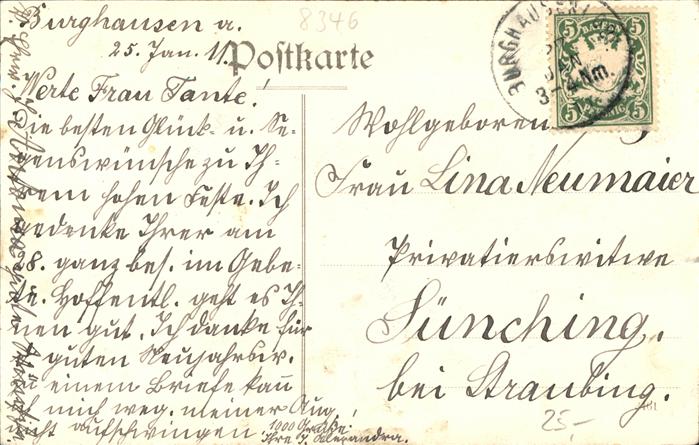 8346
Burghausen a.
25. Jan. 11.
Postkarte
Werte Frau Tante!
Die besten Glück- u. Se-
genswünsche zu Ih-
rem hohen Feste. Ich
gedenke Ihrer am
28. ganz bes. im Gebe-
te. Hoffentl. geht es Ih-
nen gut. Ich danke für
guten Neujahrsw.
einem Briefe kann
ich mich weg. meiner Aug.
nicht aufschwingen. 1000 Grüße:
Ihre J. Alexandra.
BURGHAUSEN
JAN
3-4 Nm.
5 5
BAYERN
5 5
Wohlgeboren
Frau Lina Neumaier
Privatierswitwe
Sünching.
bei Straubing.
25-